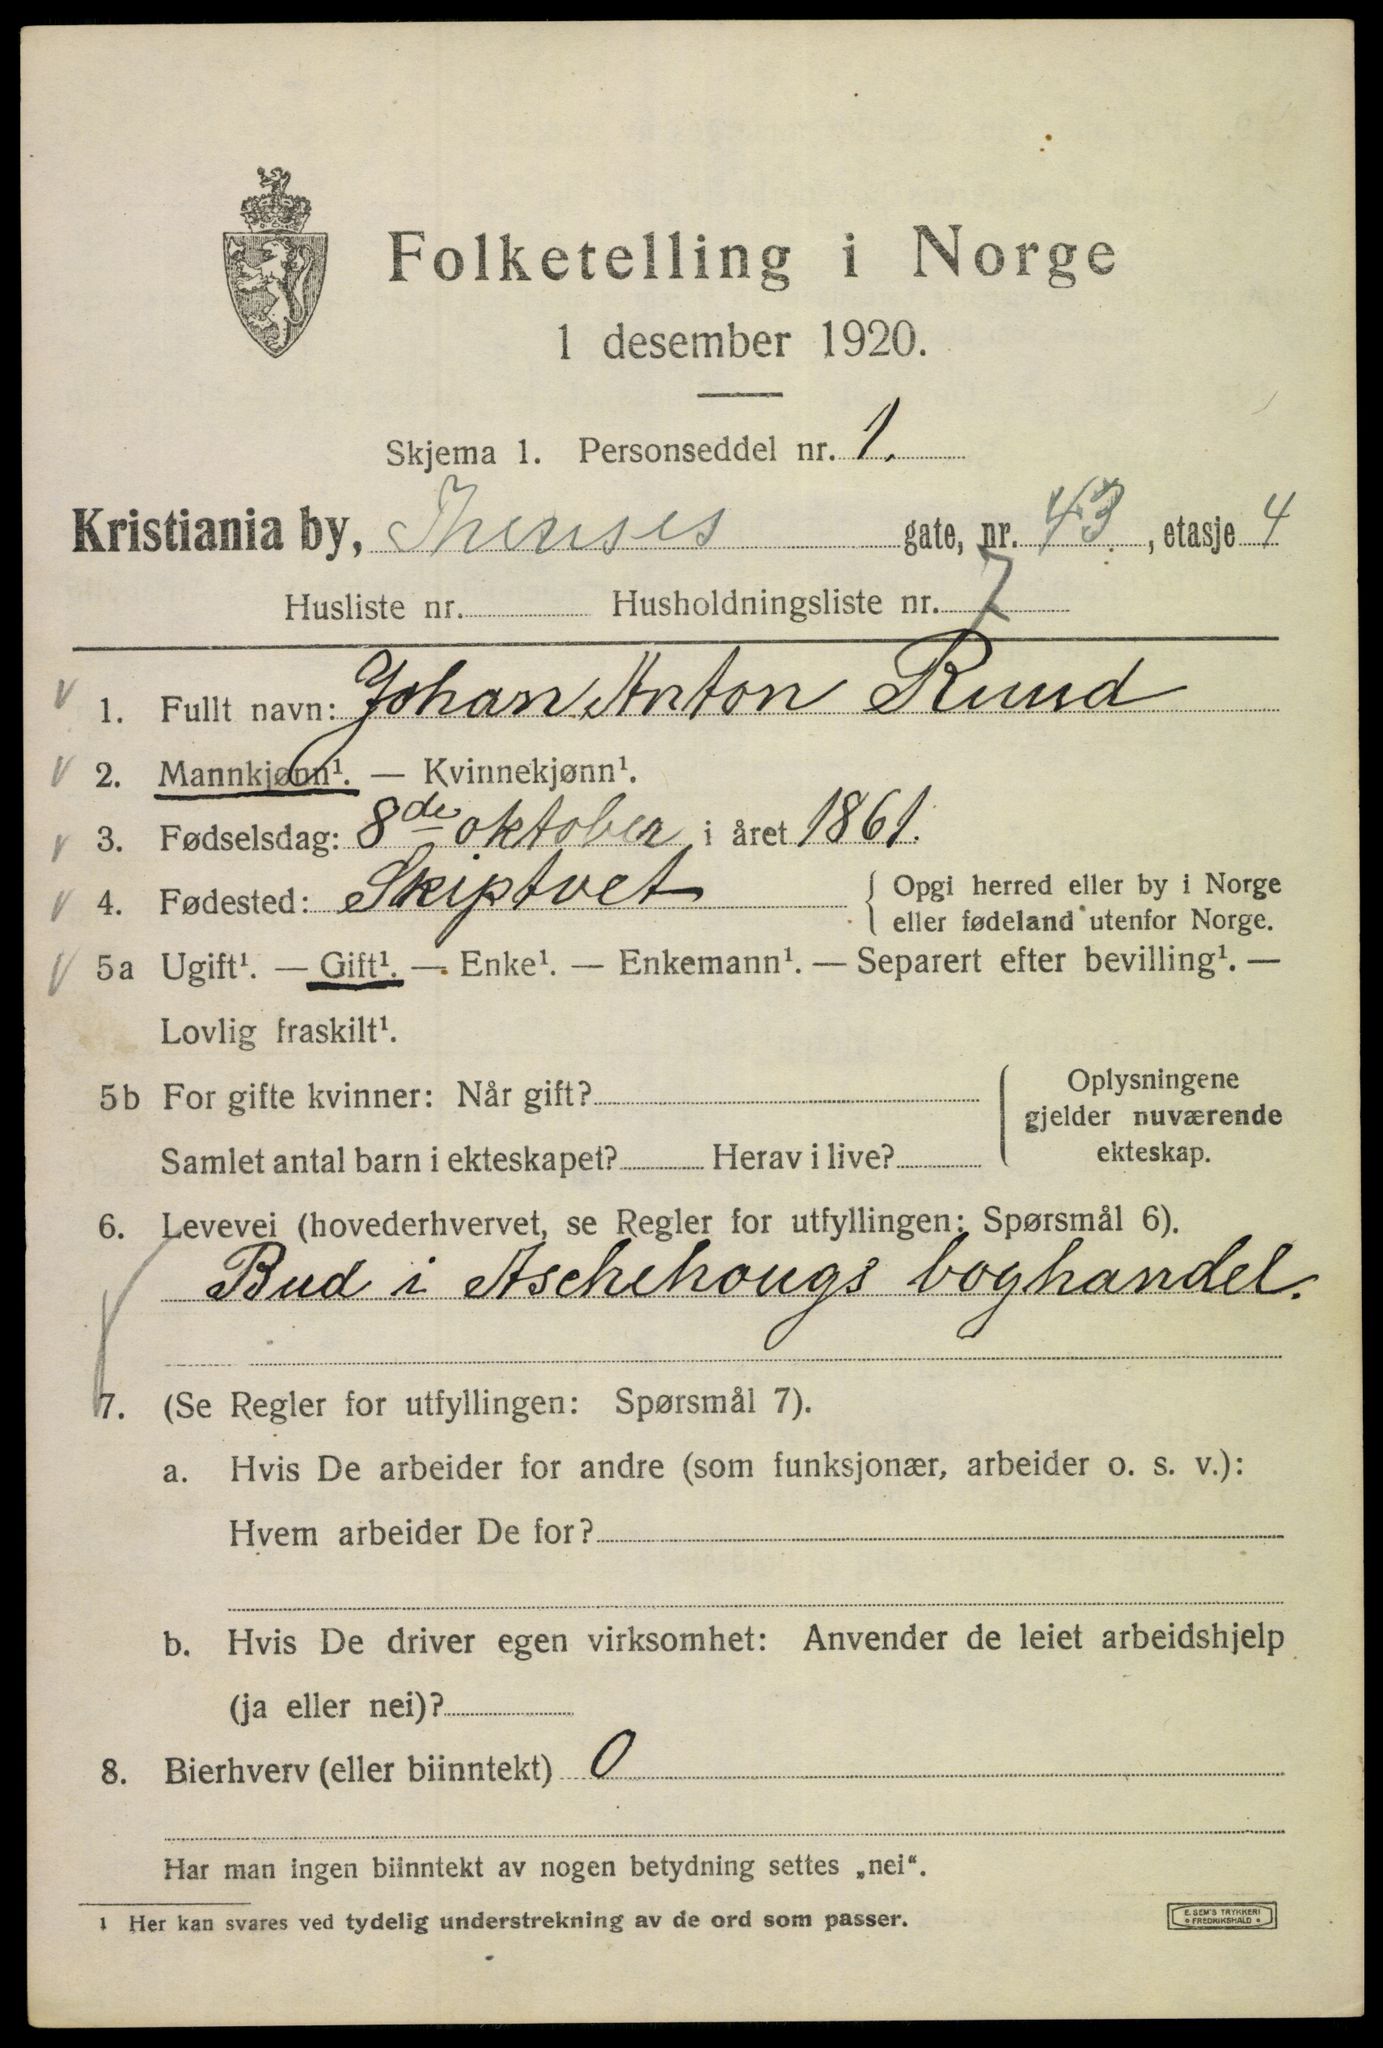 Folketelling i Norge
1 desember 1920.
Skjema 1. Personseddel nr. 1.
Kristiania by, Thereses gate, nr. 43, etasje 4
Husliste nr. Husholdningsliste nr. 7
1. Fullt navn: Johan Anton Ruud
2. Mannkjønn¹. — Kvinnekjønn¹.
3. Fødselsdag: 8de oktober i året 1861.
4. Fødested: Skiptvet { Opgi herred eller by i Norge
eller fødeland utenfor Norge.
5a Ugift¹. — Gift¹. — Enke¹. — Enkemann¹. — Separert efter bevilling¹. —
Lovlig fraskilt¹.
5b For gifte kvinner: Når gift? Oplysningene
gjelder nuværende
Samlet antal barn i ekteskapet? Herav i live? ekteskap.
6. Levevei (hovederhvervet, se Regler for utfyllingen: Spørsmål 6).
Bud i Aschehougs boghandel.
7. (Se Regler for utfyllingen: Spørsmål 7).
a. Hvis De arbeider for andre (som funksjonær, arbeider o. s. v.):
Hvem arbeider De for?
b. Hvis De driver egen virksomhet: Anvender de leiet arbeidshjelp
(ja eller nei)?
8. Bierhverv (eller biinntekt) 0
Har man ingen biinntekt av nogen betydning settes „nei“.
1 Her kan svares ved tydelig understrekning av de ord som passer.
E. SEM'S TRYKKERI
FREDRIKSHALD